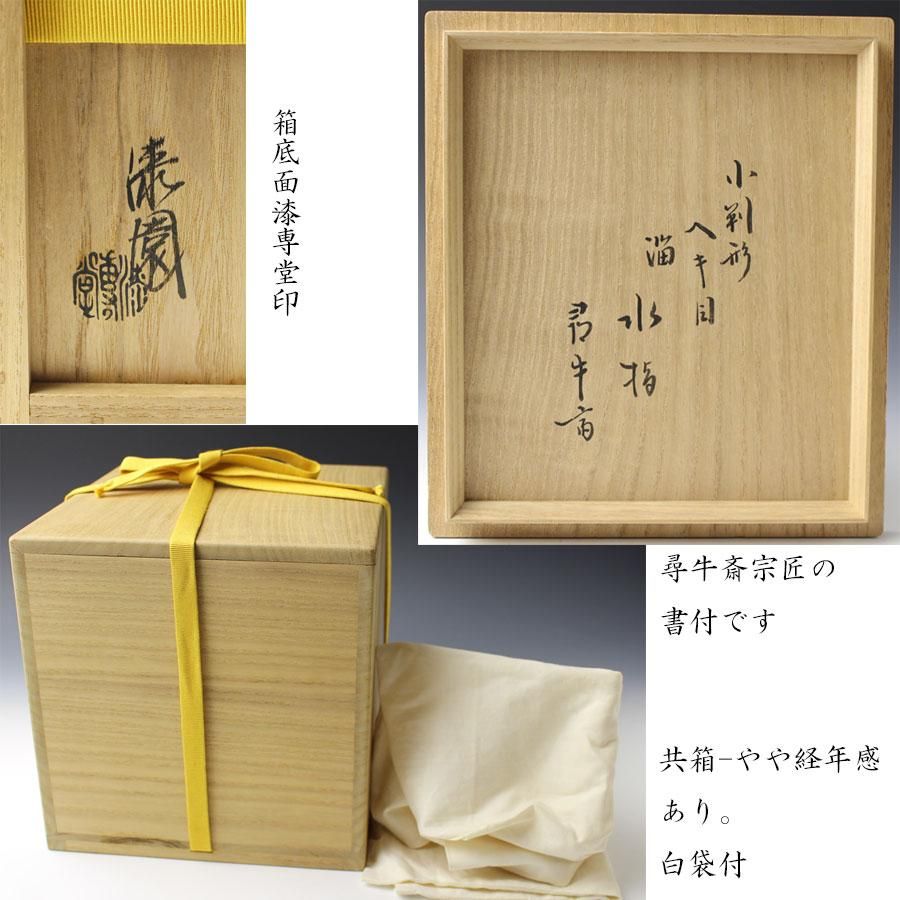 漆園
漆専堂
箱底面漆専堂印
小判形
ヘキ目
溜 水指
尋牛斎
尋牛斎宗匠の
書付です
共箱-やや経年感
あり。
白袋付